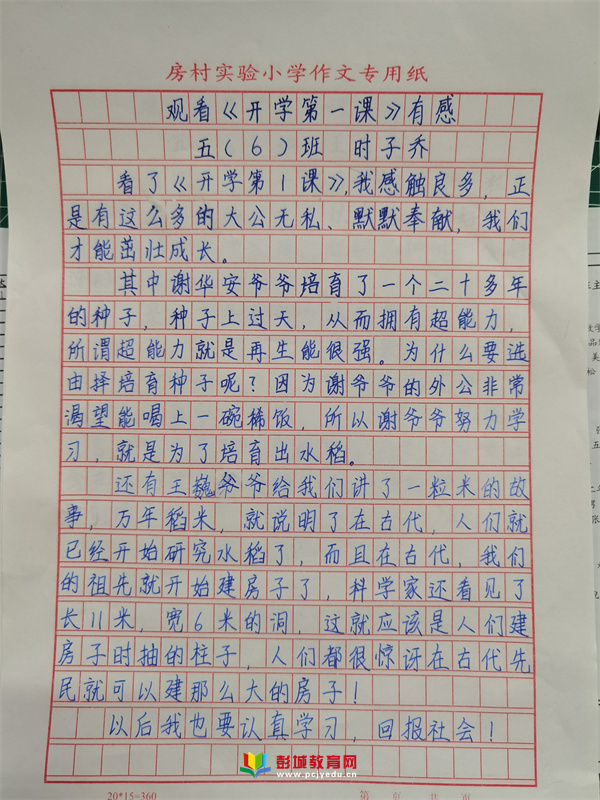 房村实验小学作文专用纸
观看《开学第一课》有感
五(6)班 时子乔
看了《开学第1课》,我感触良多,正
是有这么多的大公无私、默默奉献,我们
才能茁壮成长。
其中谢华安爷爷培育了一个二十多年
的种子,种子上过天,从而拥有超能力,
所谓超能力就是再生能很强。为什么要选
由择培育种子呢?因为谢爷爷的外公非常
渴望能喝上一碗稀饭,所以谢爷爷努力学
习,就是为了培育出水稻。
还有王巍爷爷给我们讲了一粒米的故
事,万年稻米,就说明了在古代,人们就
已经开始研究水稻了,而且在古代,我们
的祖先就开始建房子了,科学家还看见了
长11米,宽6米的洞,这就应该是人们建
房子时抽的柱子,人们都很惊讶在古代先
民就可以建那么大的房子!
以后我也要认真学习,回报社会!
彭城教育网
www.pcjyedu.cn
20*15=360
第 页 共 页